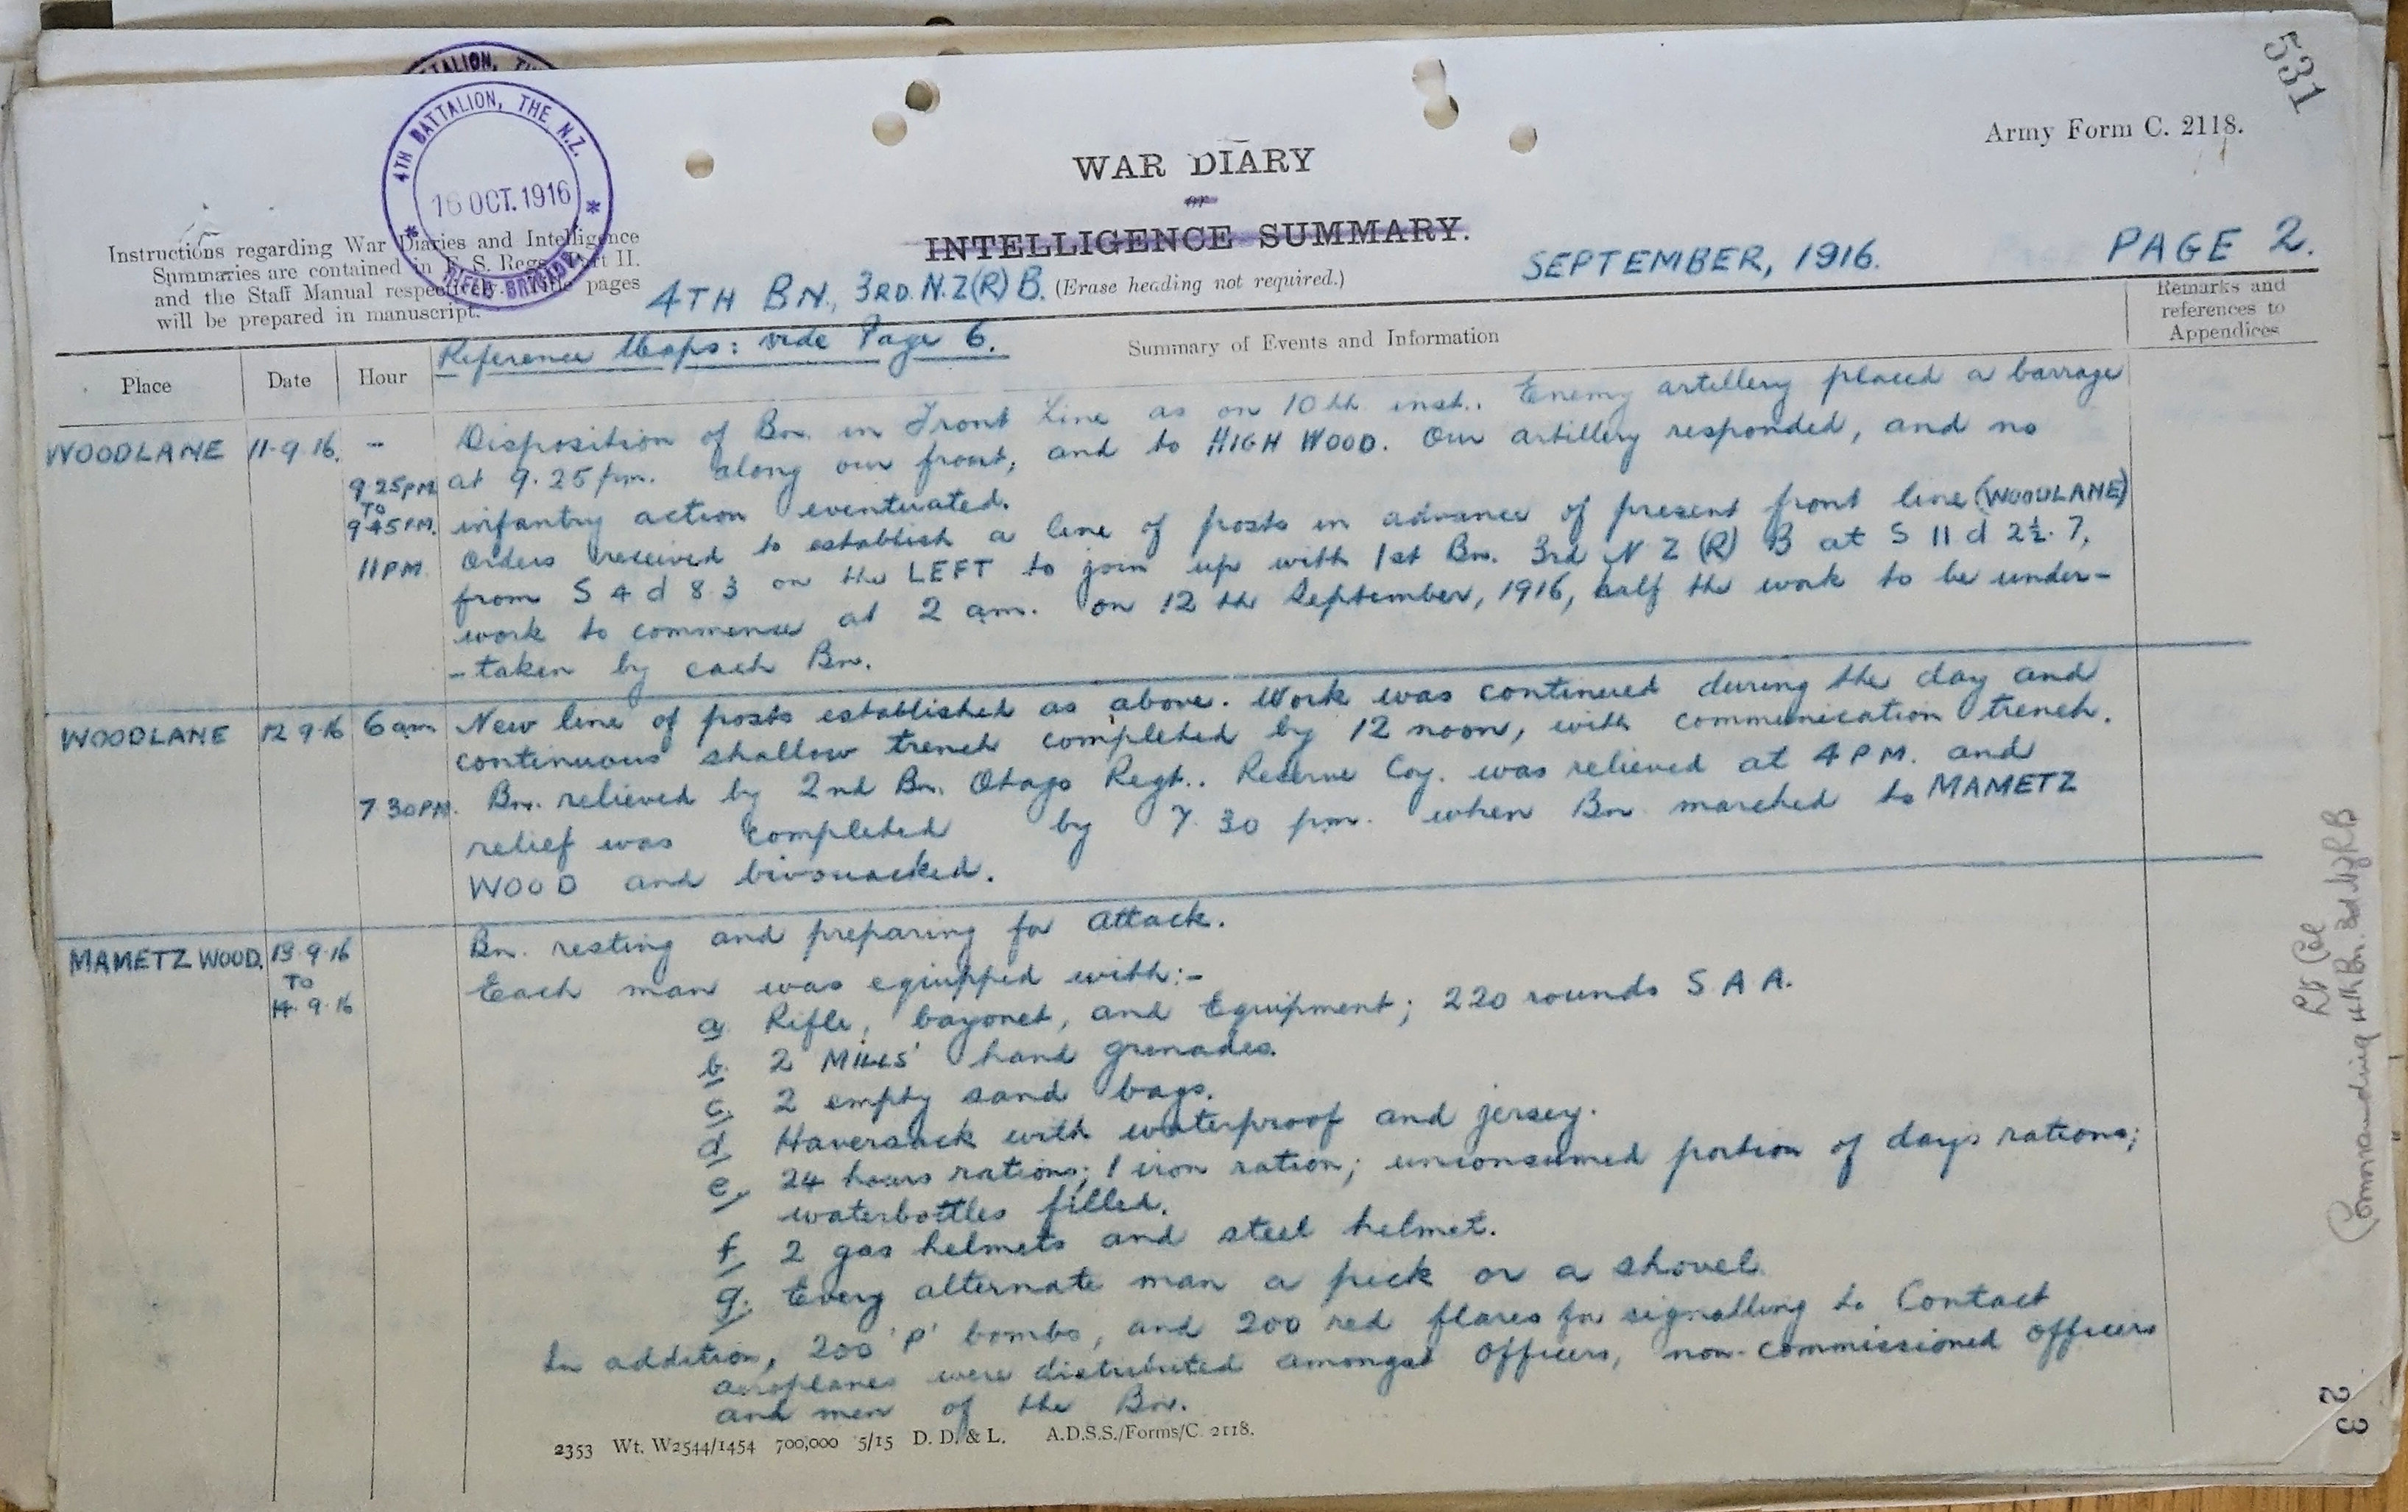 531
Army Form C. 2118.
4TH BATTALION, THE N.Z.
16 OCT. 1916
RIFLE BRIGADE
WAR DIARY
or
INTELLIGENCE SUMMARY.
Instructions regarding War Diaries and Intelligence
Summaries are contained in F. S. Regs., Part II.
and the Staff Manual respectively. Title pages
will be prepared in manuscript.
4TH BN., 3RD. N.Z(R) B. (Erase heading not required.)
SEPTEMBER, 1916.
PAGE 2.
Place
Date
Hour
Reference Maps: vide Page 6.
Summary of Events and Information
Remarks and
references to
Appendices
WOODLANE 11-9-16. - Disposition of Bn. in Front Line as on 10th inst.. Enemy artillery placed a barrage
9.25PM at 9.25 pm. along our front, and to HIGH WOOD. Our artillery responded, and no
TO
9.45PM. infantry action eventuated.
11PM. Orders received to establish a line of posts in advance of present front line (WOODLANE)
from S 4 d 8.3 on the LEFT to join up with 1st Bn. 3rd N Z (R) B at S 11 d 2½.7,
work to commence at 2 am. on 12th September, 1916, half the work to be under-
-taken by each Bn.
WOODLANE 12 9.16 6am New line of posts established as above. Work was continued during the day and
continuous shallow trench completed by 12 noon, with communication trench.
7 30PM. Bn. relieved by 2nd Bn. Otago Regt.. Reserve Coy. was relieved at 4PM. and
relief was completed by 7.30 pm. when Bn marched to MAMETZ
WOOD and bivouacked.
MAMETZ WOOD. 13.9.16 Bn. resting and preparing for attack.
TO
14.9.16 Each man was equipped with:-
a. Rifle, bayonet, and Equipment; 220 rounds S A A.
b. 2 MILLS' hand grenades.
c. 2 empty sand bags.
d. Haversack with waterproof and jersey.
e. 24 hours rations; 1 iron ration; unconsumed portion of days rations;
waterbottles filled.
f. 2 gas helmets and steel helmet.
g. Every alternate man a pick or a shovel.
In addition, 200 'P' bombs, and 200 red flares for signalling to Contact
aeroplanes were distributed amongst Officers, non-commissioned officers
and men of the Bn.
2353 Wt. W2544/1454 700,000 5/15 D. D. & L. A.D.S.S./Forms/C. 2118.
Lt Col
Commanding 4th Bn. 3rd NZRB
23